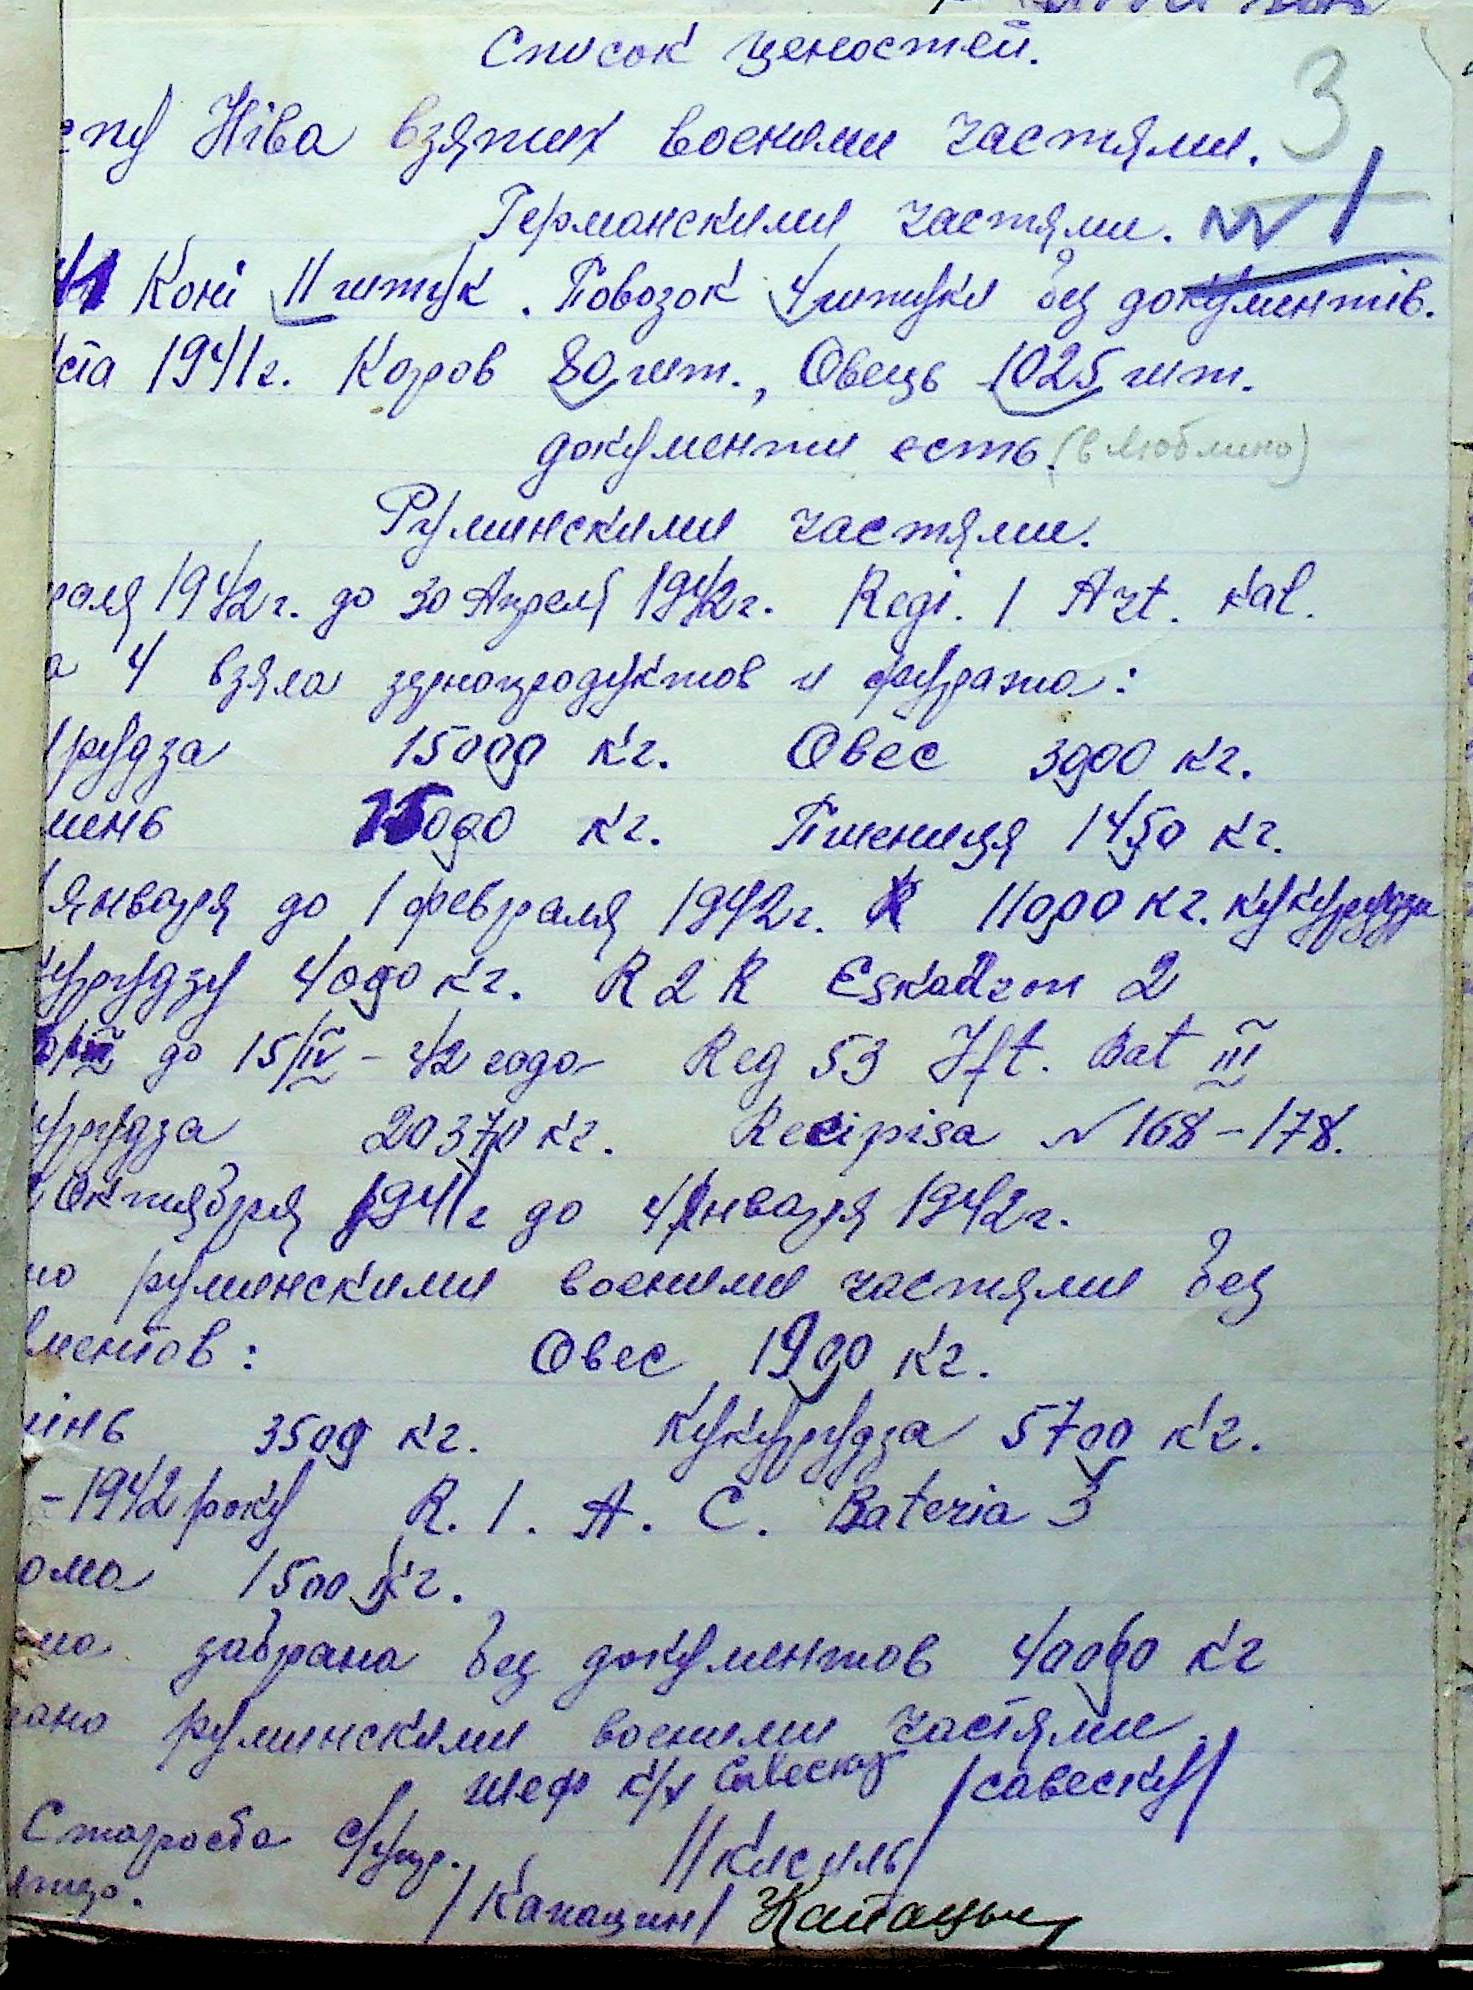 Список ценостей.
3
епу Нiва взятих военими частями.
Германскими частями. № 1
41 Конi 11 штук. Повозок 4 штуки без документiв.
ста 1941г. Коров 80 шт., Овець 1025 шт.
документи есть. (в Люблино)
Руминскими частями.
раля 1942г. до 30 Апреля 1942г. Regi. 1 Art. Kal.
а 4 взяла зернопродуктов и фуража:
урудза 15000 кг. Овес 3000 кг.
мень 15000 кг. Пшениця 1450 кг.
Января до 1 февраля 1942г. 11000 кг. кукурудзи
курудзу 4000 кг. R 2 R Eskadron 2
до 15/IV - 42 года Reg 53 Jft. Bat III
курудза 20370 кг. Recipisa № 168-178.
Октября 1941г до 4 Января 1942г.
но руминскими военими частями без
ументов: Овес 1900 кг.
мiнь 3500 кг. Кукурудза 5700 кг.
-1942 року R. 1. A. C. Bateria 3
ома 1500 кг.
забрана без документов 40000 кг
рано руминскими военими частями
шеф к/х Савеску /Савеску/
Староста с/упр. /Кисиль/
/Капацин/ Капацын